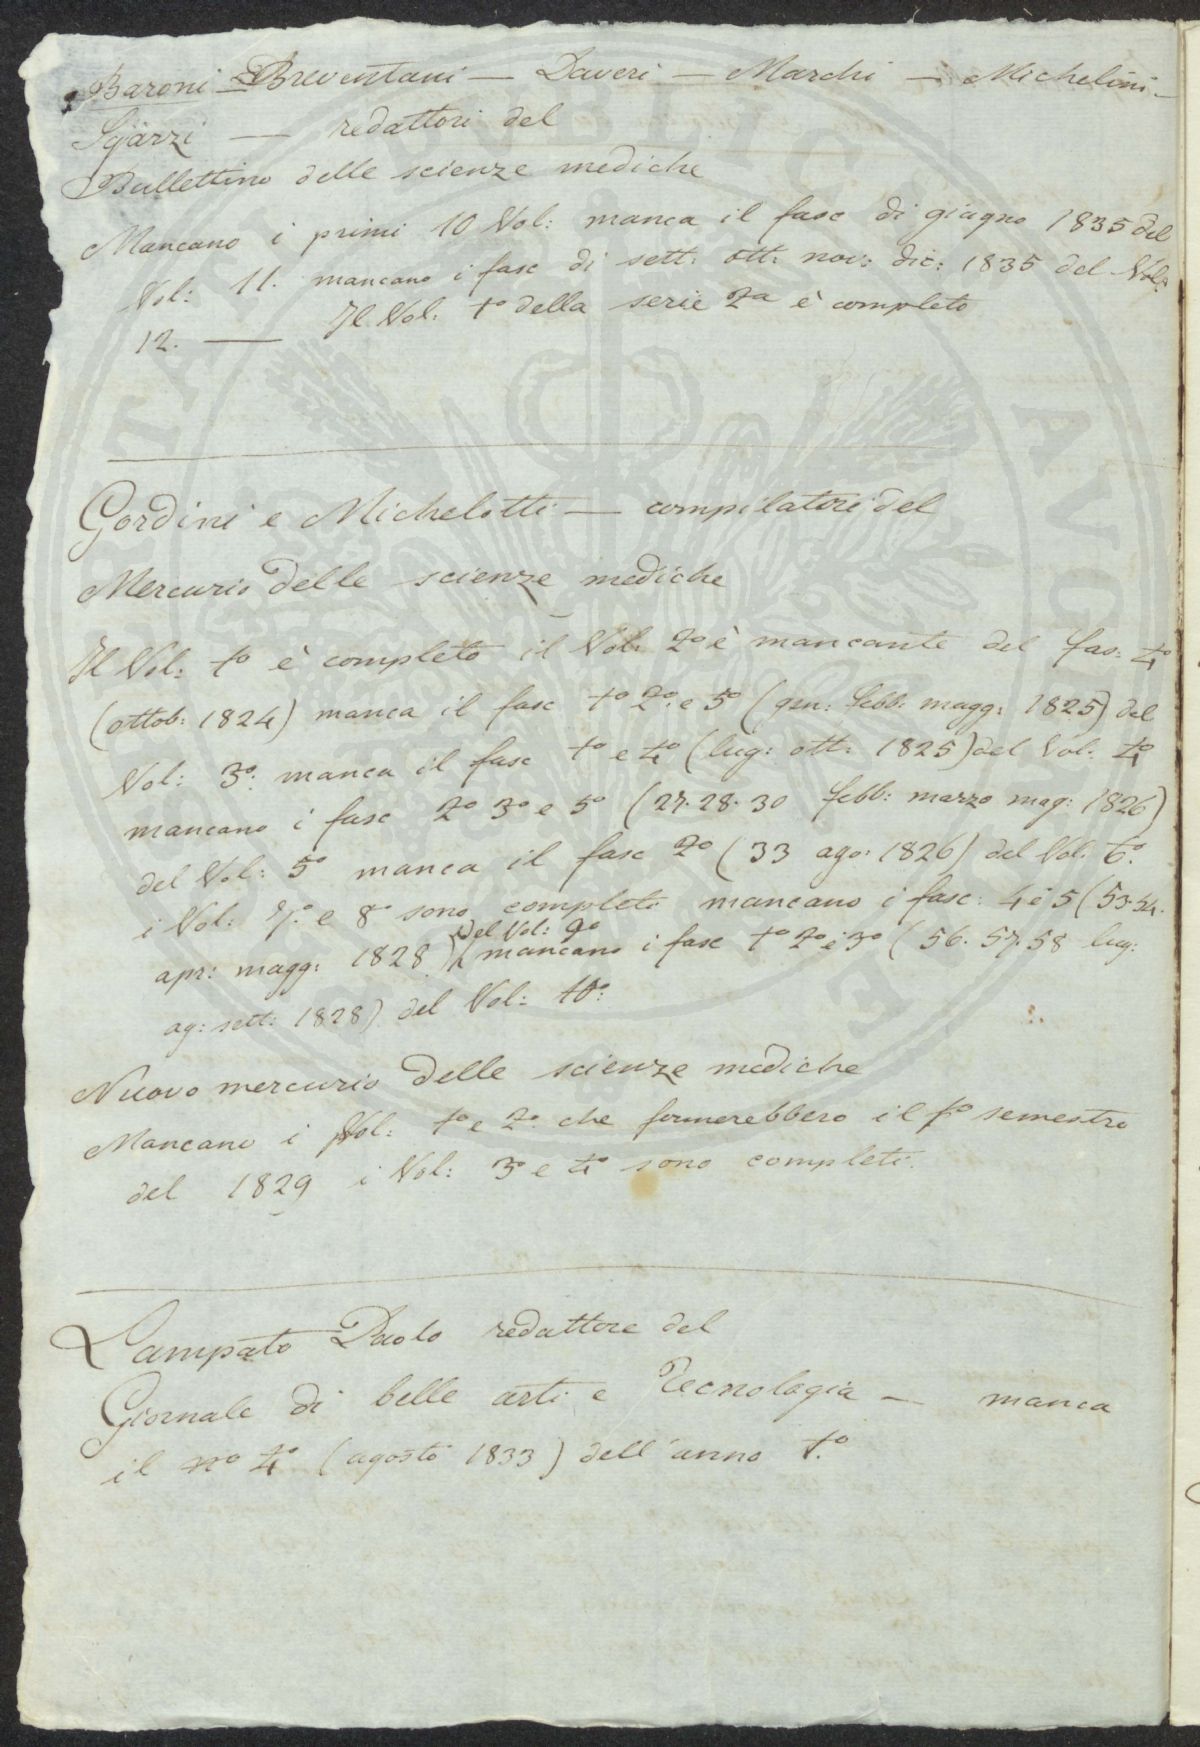 Baroni — Breventani — Daveri — Marchi — Michelini —
Sgarzi — redattori del
Bullettino delle scienze mediche
Mancano i primi 10 Vol: manca il fasc di giugno 1835 del
Vol: 11. mancano i fasc di sett: ott: nov: dic: 1835 del Vol:
12. — Il Vol: 1º della serie 2ª è completo
Gordini e Michelotti — compilatori del
Mercurio delle scienze mediche
Il Vol: 1º è completo il Vol: 2º è mancante del fas: 4º
(ottob: 1824) manca il fasc 1º 2º e 5º (gen: febb: magg: 1825) del
Vol: 3º: manca il fasc 1º e 4º (lug: ott: 1825) del Vol: 4º
mancano i fasc 2º 3º e 5º (27. 28. 30 febb: marzo mag: 1826)
del Vol: 5º manca il fasc 2º (33 ago: 1826) del Vol: 6º.
i Vol: 7º. e 8º sono completi mancano i fasc: 4 e 5 (53. 54.
apr: magg: 1828) del Vol: 9º mancano i fasc 1º 2º e 3º (56. 57. 58 lug:
ag: sett: 1828) del Vol: 10º:
Nuovo mercurio delle scienze mediche
Mancano i Vol: 1º e 2º che formerebbero il 1º semestre
del 1829 i Vol: 3º e 4º sono completi.
Lampato Paolo redattore del
Giornale di belle arti e Tecnologia — manca
il nº 4º (agosto 1833) dell'anno 1º.